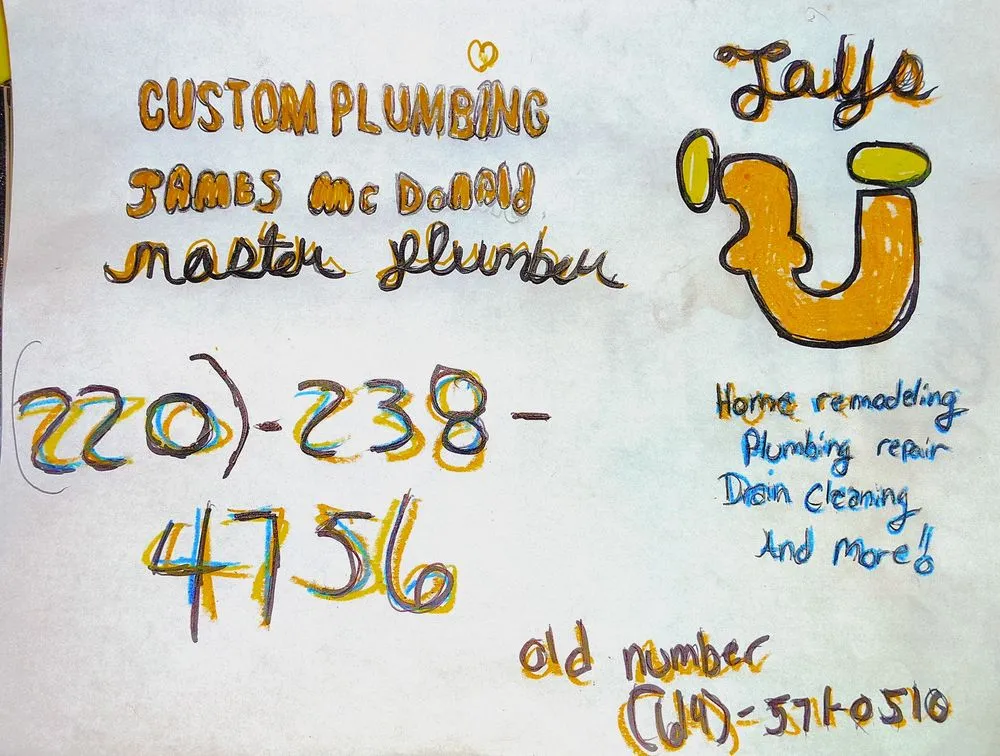 CUSTOM PLUMBING
JAMES Mc DoNAld
master plumber
(220)-238-
4756
Jays
Home remodeling
Plumbing repair
Drain Cleaning
And More!!
old number
(614)-571-0510